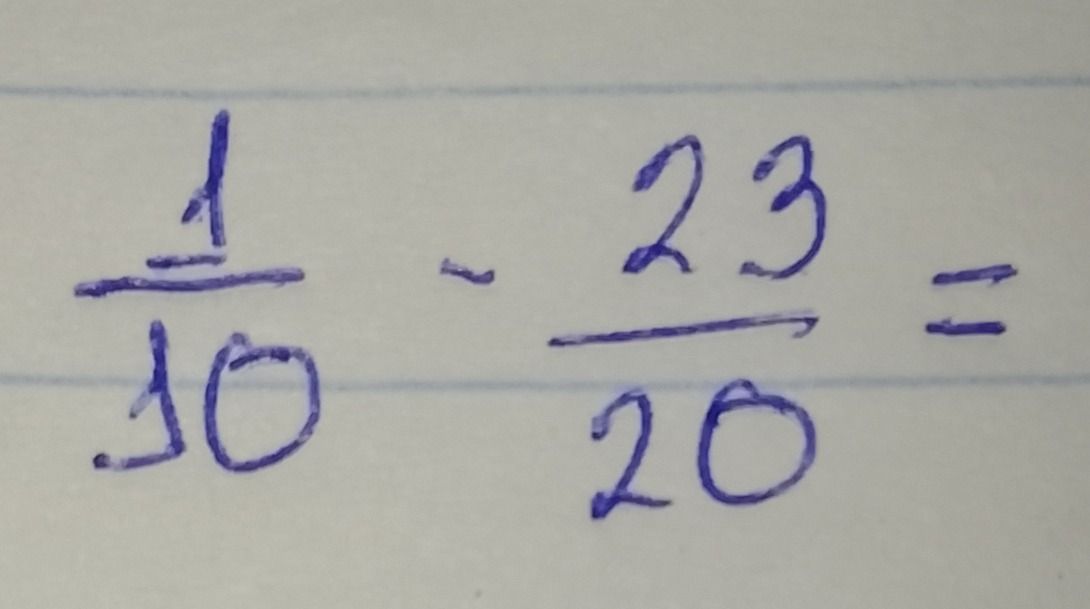 1/10 - 23/20 =